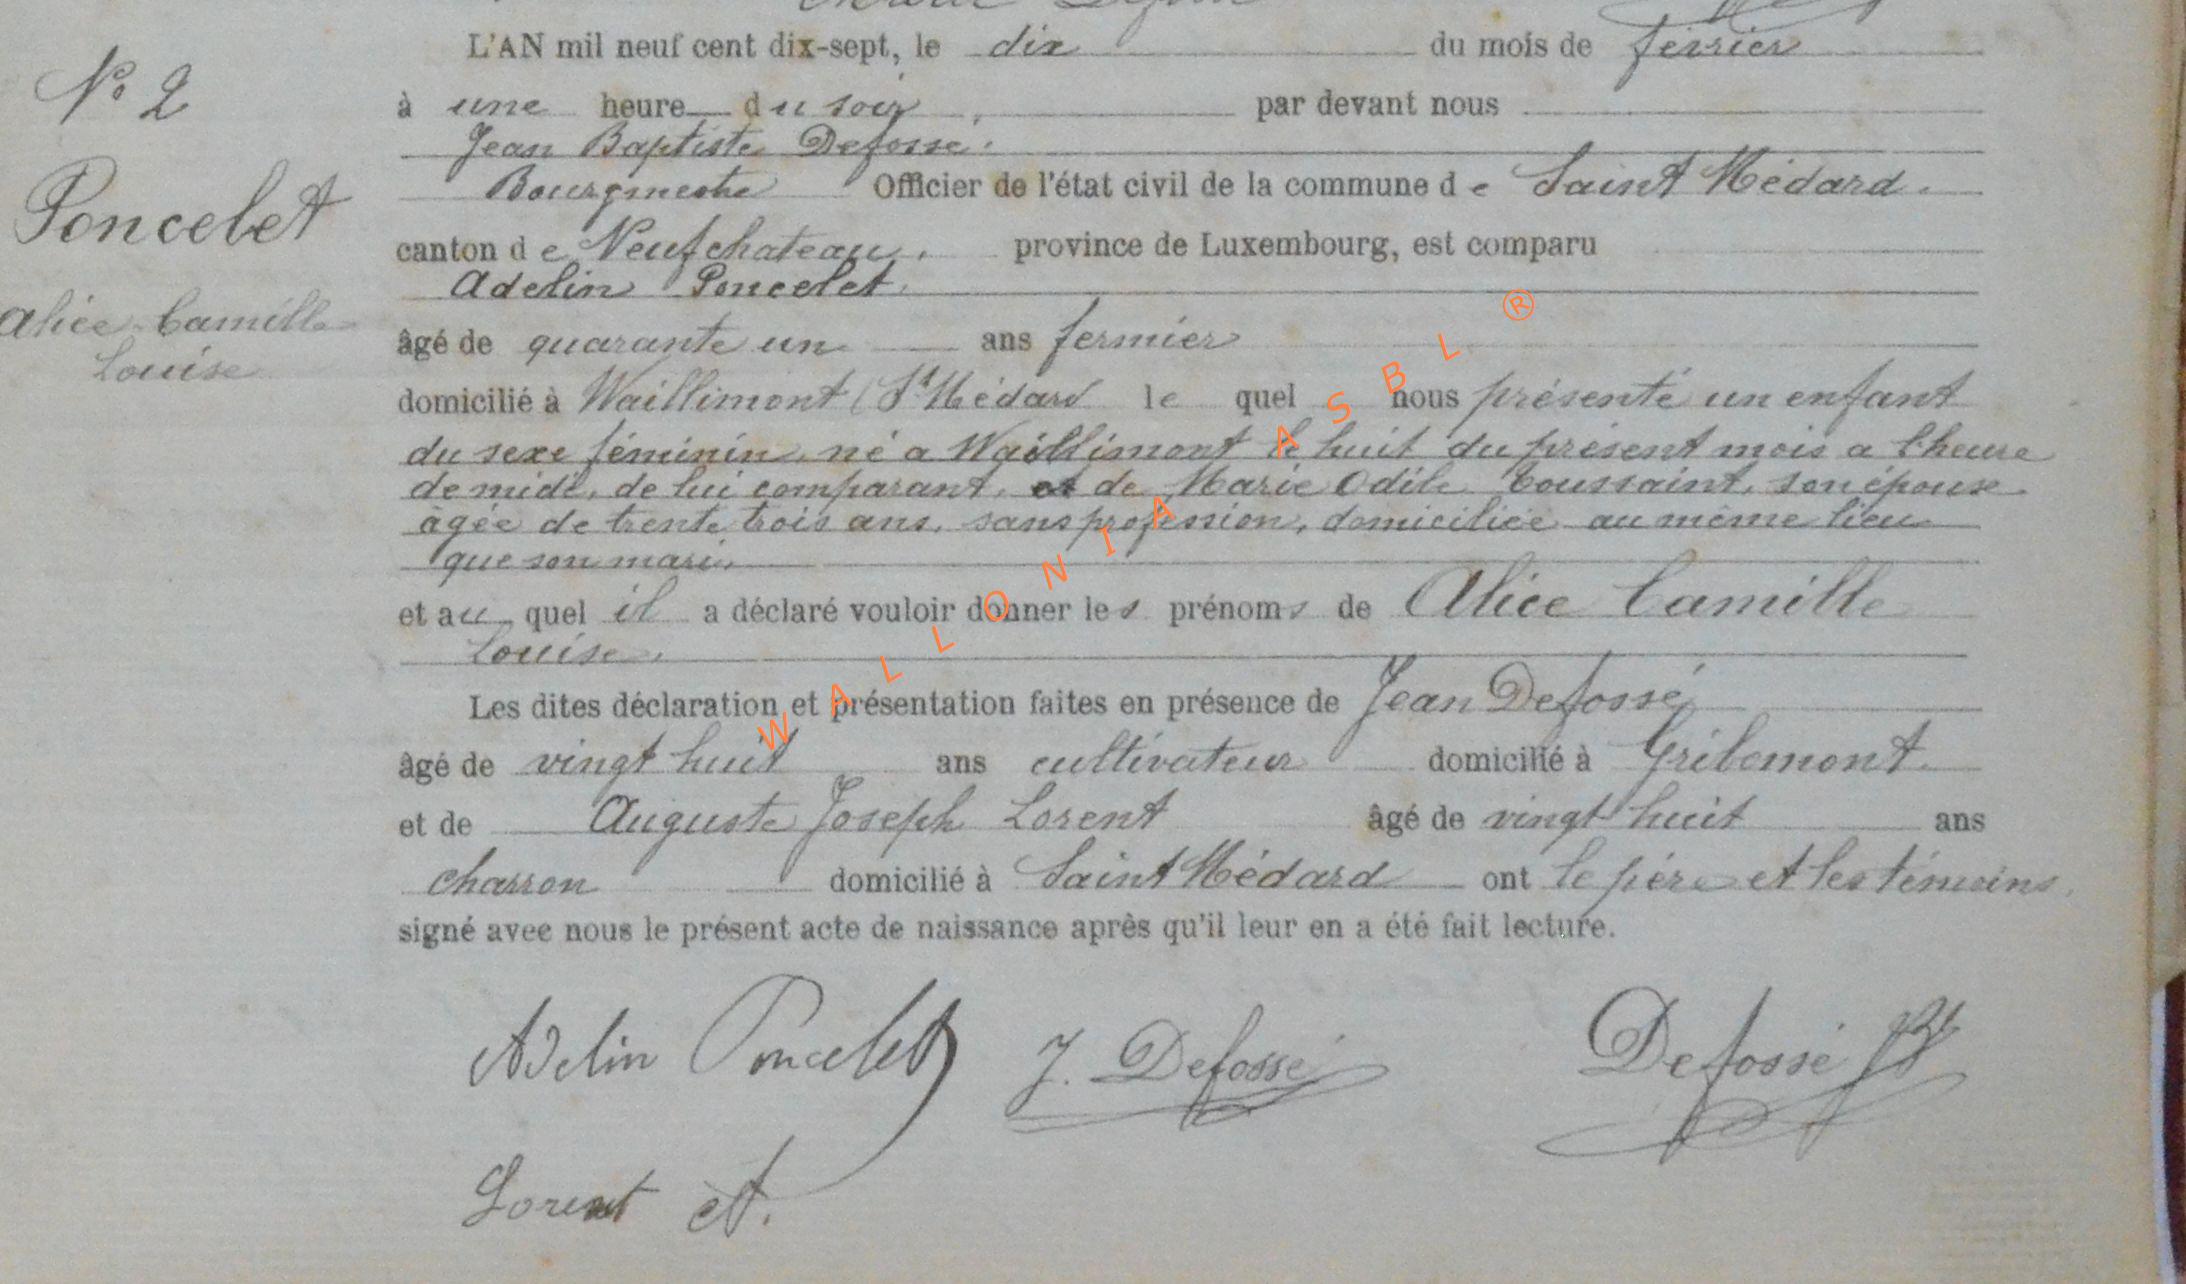 L'AN mil neuf cent dix-sept, le dix du mois de février
N° 2
à une heure du soir, par devant nous
Jean Baptiste Defossé,
Poncelet
Bourgmestre Officier de l'état civil de la commune de Saint Médard.
canton de Neufchateau, province de Luxembourg, est comparu
Adelin Poncelet,
Alice Camille
Louise
âgé de quarante un ans fermier
domicilié à Waillimont (St Médard le quel nous présenté un enfant
du sexe féminin, né a Waillimont le huit du présent mois a l'heure
de midi, de lui comparant, et de Marie Odile Toussaint, son épouse
âgée de trente trois ans, sans profession, domiciliée au même lieu
que son mari,
et au quel il a déclaré vouloir donner les prénoms de Alice Camille
Louise,
Les dites déclaration et présentation faites en présence de Jean Defossé
âgé de vingt huit ans cultivateur domicilié à Gribomont
et de Auguste Joseph Lorent âgé de vingt huit ans
charron domicilié à Saint Médard ont le père et les témoins,
signé avec nous le présent acte de naissance après qu'il leur en a été fait lecture.
Adelin Poncelet J. Defossé Defossé JB
Lorent A.
WALLONIA ASBL ®